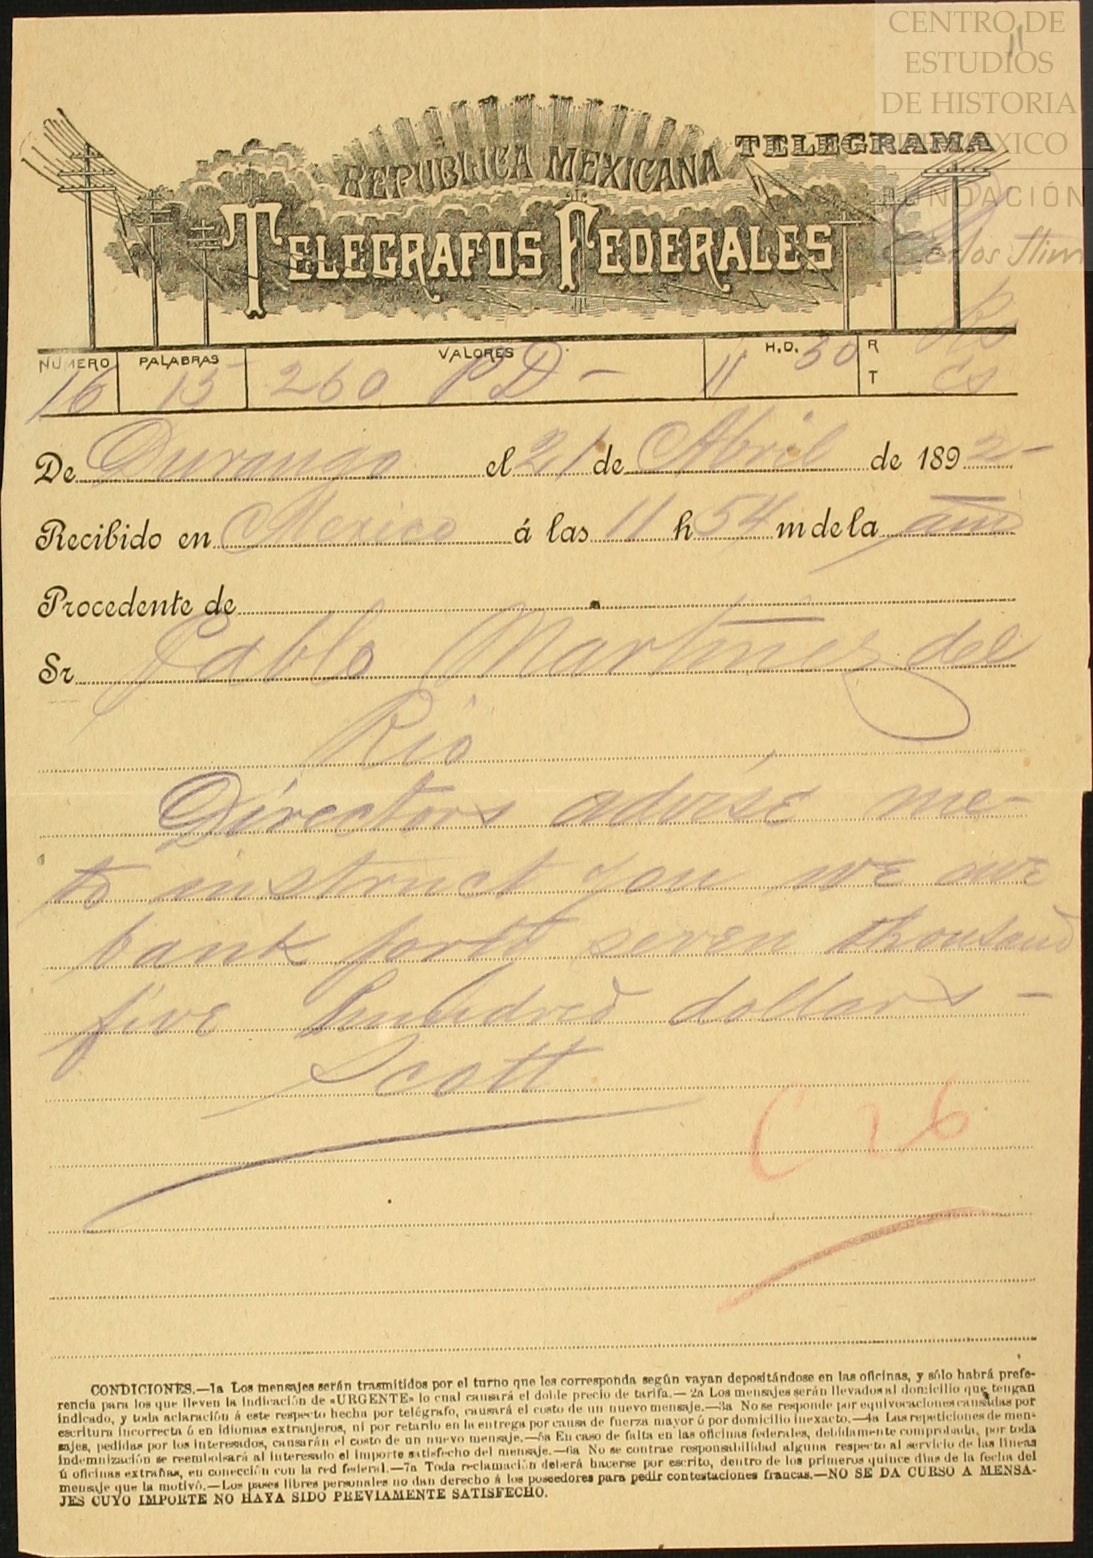 CENTRO DE
ESTUDIOS
DE HISTORIA
DE MÉXICO
FUNDACIÓN
11
TELEGRAMA
REPUBLICA MEXICANA
TELEGRAFOS FEDERALES
NUMERO PALABRAS VALORES H.D. R
16 15 260 PD - 11 30 T
De Durango el 21 de Abril de 1892-
Recibido en Mexico á las 11 h 54 m de la am
Procedente de
Sr Pablo Martinez del
Rio
Directors advise me-
to instruct you we owe
bank forty seven thousand
five hundred dollars -
Scott
C 26
CONDICIONES.—1a Los mensajes serán trasmitidos por el turno que les corresponda según vayan depositándose en las oficinas, y sólo habrá prefe-
rencia para los que lleven la indicación de «URGENTE» lo cual causará el doble precio de tarifa.—2a Los mensajes serán llevados al domicilio que tengan
indicado, y toda aclaración á este respecto hecha por telégrafo, causará el costo de un nuevo mensaje.—3a No se responde por equivocaciones causadas por
escritura incorrecta ó en idiomas extranjeros, ni por retardo en la entrega por causa de fuerza mayor ó por domicilio inexacto.—4a Las repeticiones de men-
sajes, pedidas por los interesados, causarán el costo de un nuevo mensaje.—5a En caso de falta en las oficinas federales, debidamente comprobada, por toda
indemnización se reembolsará al interesado el importe satisfecho del mensaje.—6a No se contrae responsabilidad alguna respecto al servicio de las líneas
ú oficinas extrañas, en conección con la red federal.—7a Toda reclamación deberá hacerse por escrito, dentro de los primeros quince días de la fecha del
mensaje que la motivó.—Los pases libres personales no dan derecho á los poseedores para pedir contestaciones francas.—NO SE DA CURSO A MENSA-
JES CUYO IMPORTE NO HAYA SIDO PREVIAMENTE SATISFECHO.